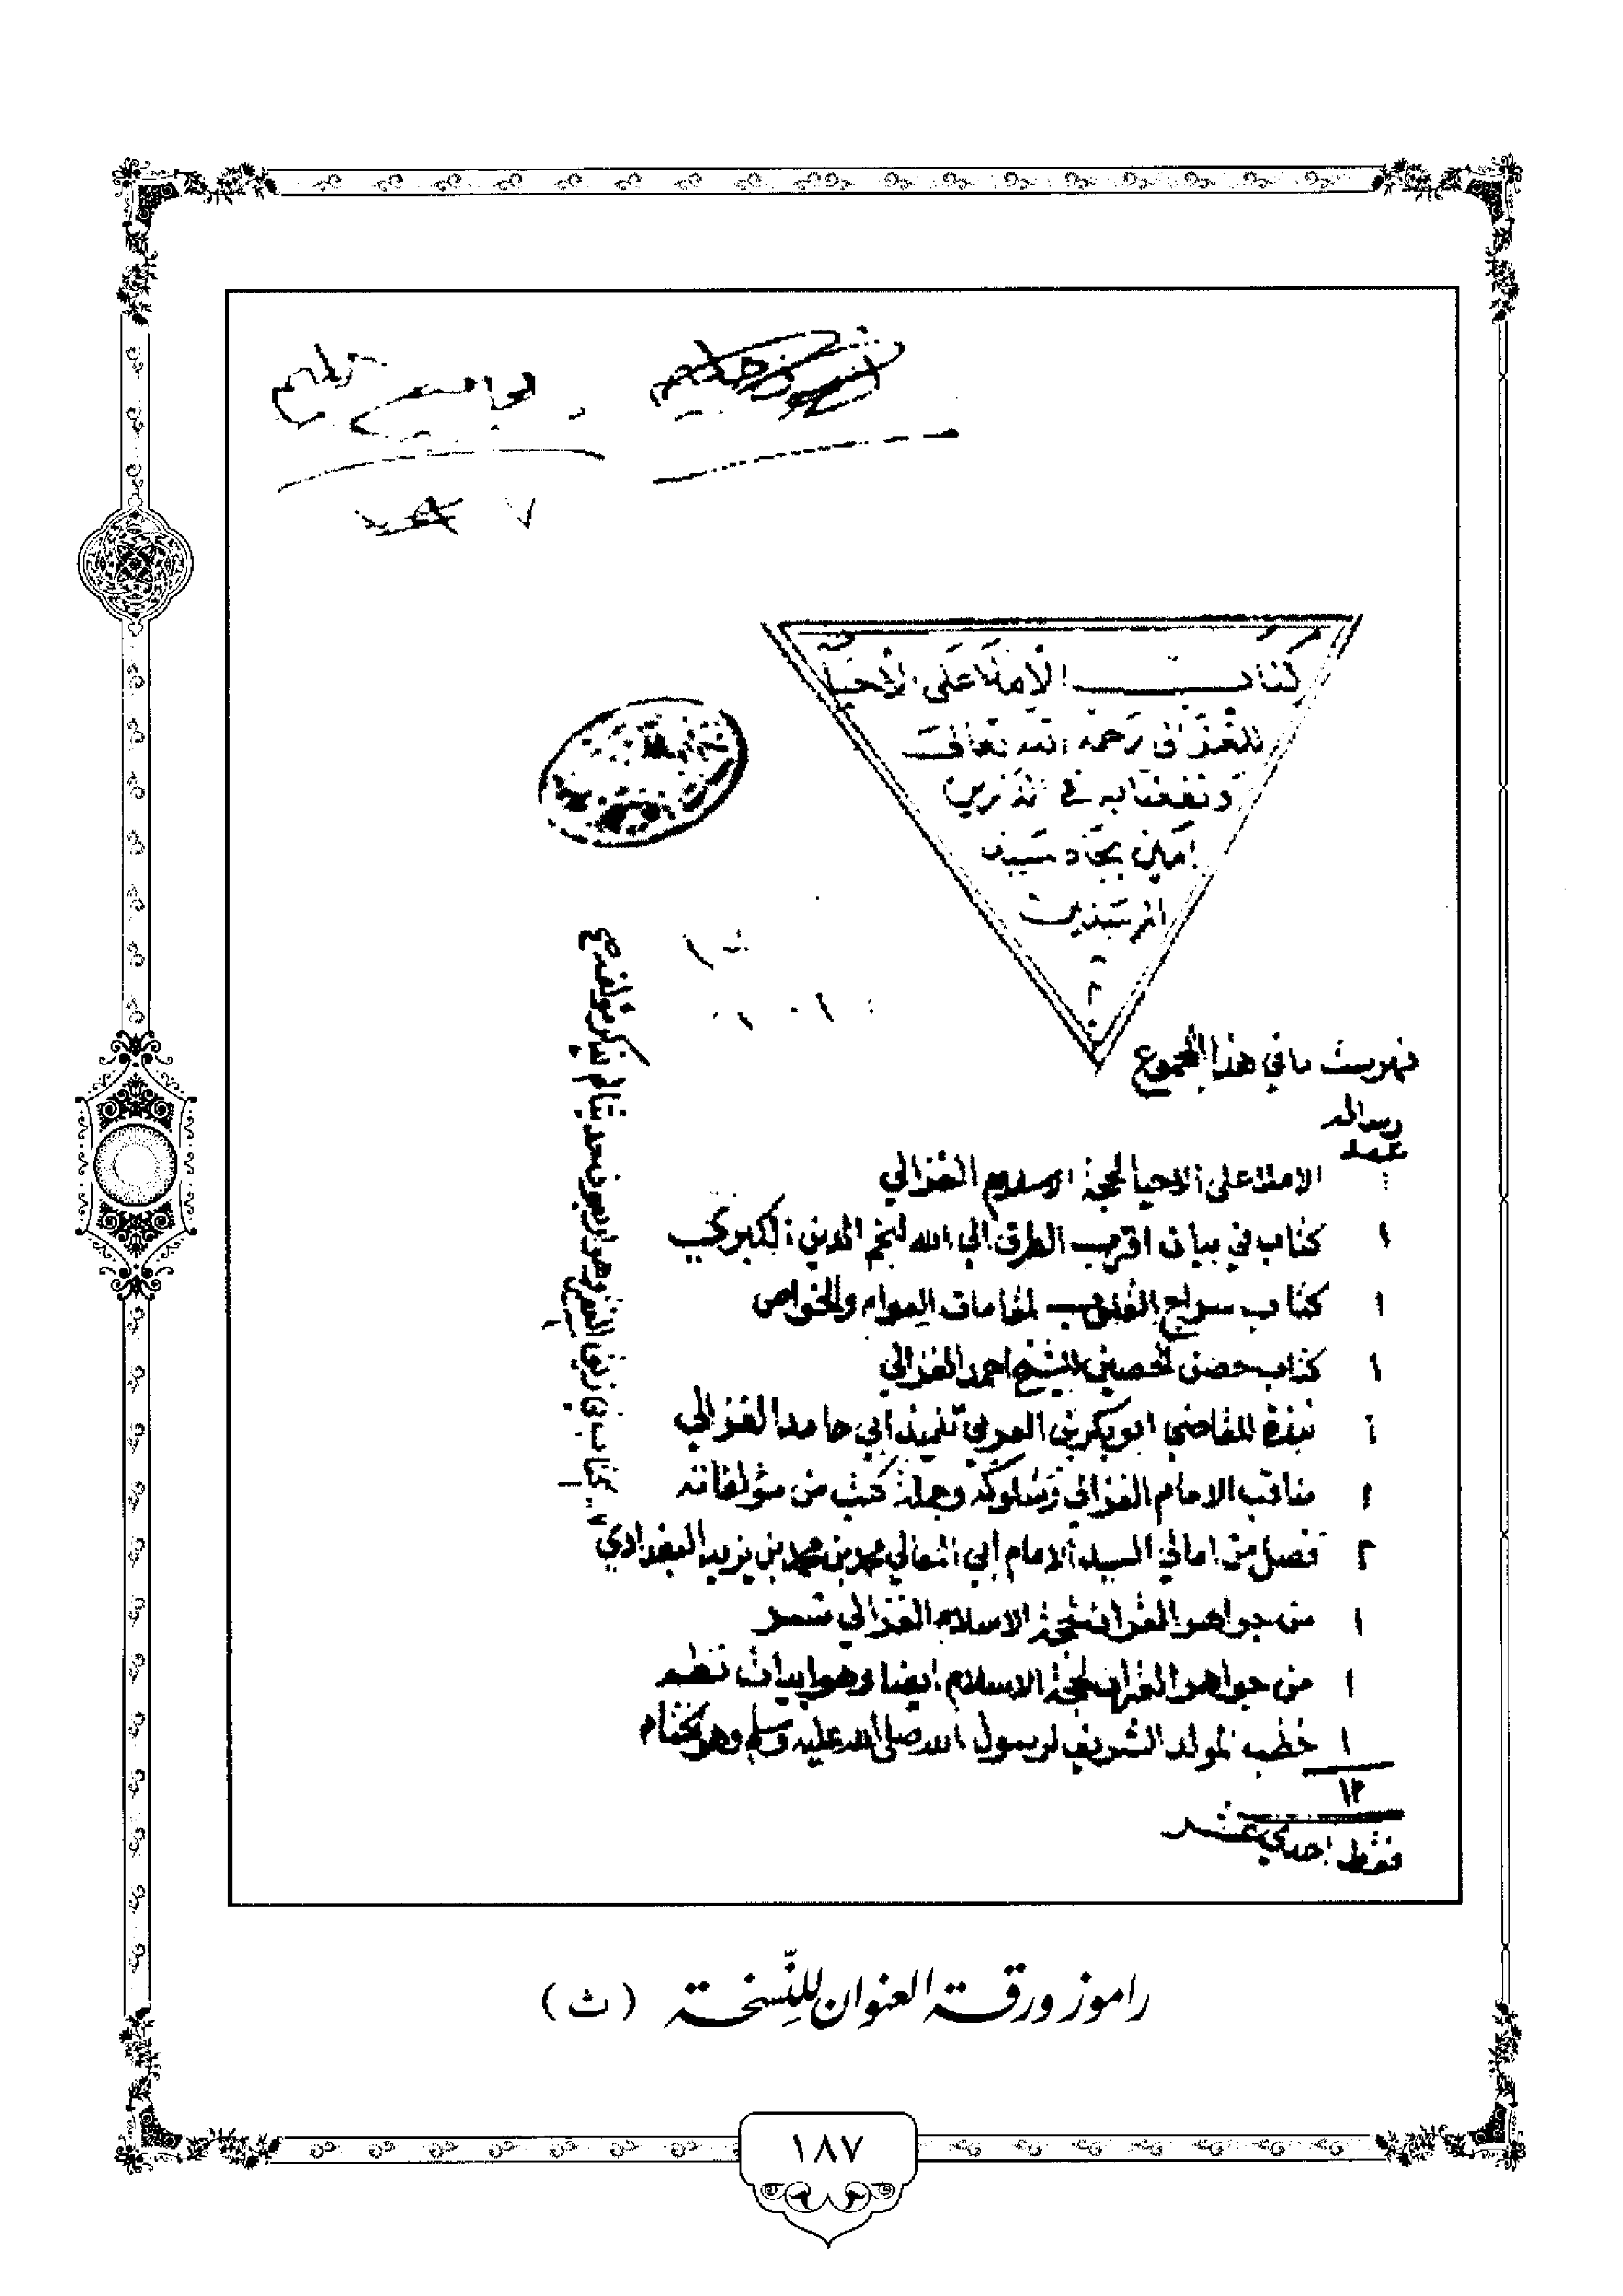 كتاب الإملا على الاحيا
للغزالي رحمه الله تعالى
ونفعنا به في الدارين
امين بجاه سيد
المرسلين
فهرست ما في هذا المجموع
رسالة
عدد
١ الاملا على الاحيا لحجة الاسلام الغزالي
١ كتاب في بيان اقرب الطرق الى الله لنجم الدين الكبري
١ كتاب سراج القلوب لمقامات العوام والخواص
١ كتاب حصن الحصين للشيخ احمد الغزالي
١ نبذة للقاضي ابو بكر بن العربي تلميذ ابي حامد الغزالي
١ مناقب الامام الغزالي وسلوكه وجملة كتب من مؤلفاته
٢ فصل من امالي السيد الامام ابي المعالي محمد بن محمد بن زيد البغدادي
١ من جواهر القران لحجة الاسلام الغزالي شعر
١ من جواهر القران لحجة الاسلام ايضا وهو ابيات نظم
١ خطبة لمولد الشريف لرسول الله صلى الله عليه وسلم وهو بختام
١٢
فقط احدي عشر
راموز ورقة العنوان للنّسخة (ث)
١٨٧